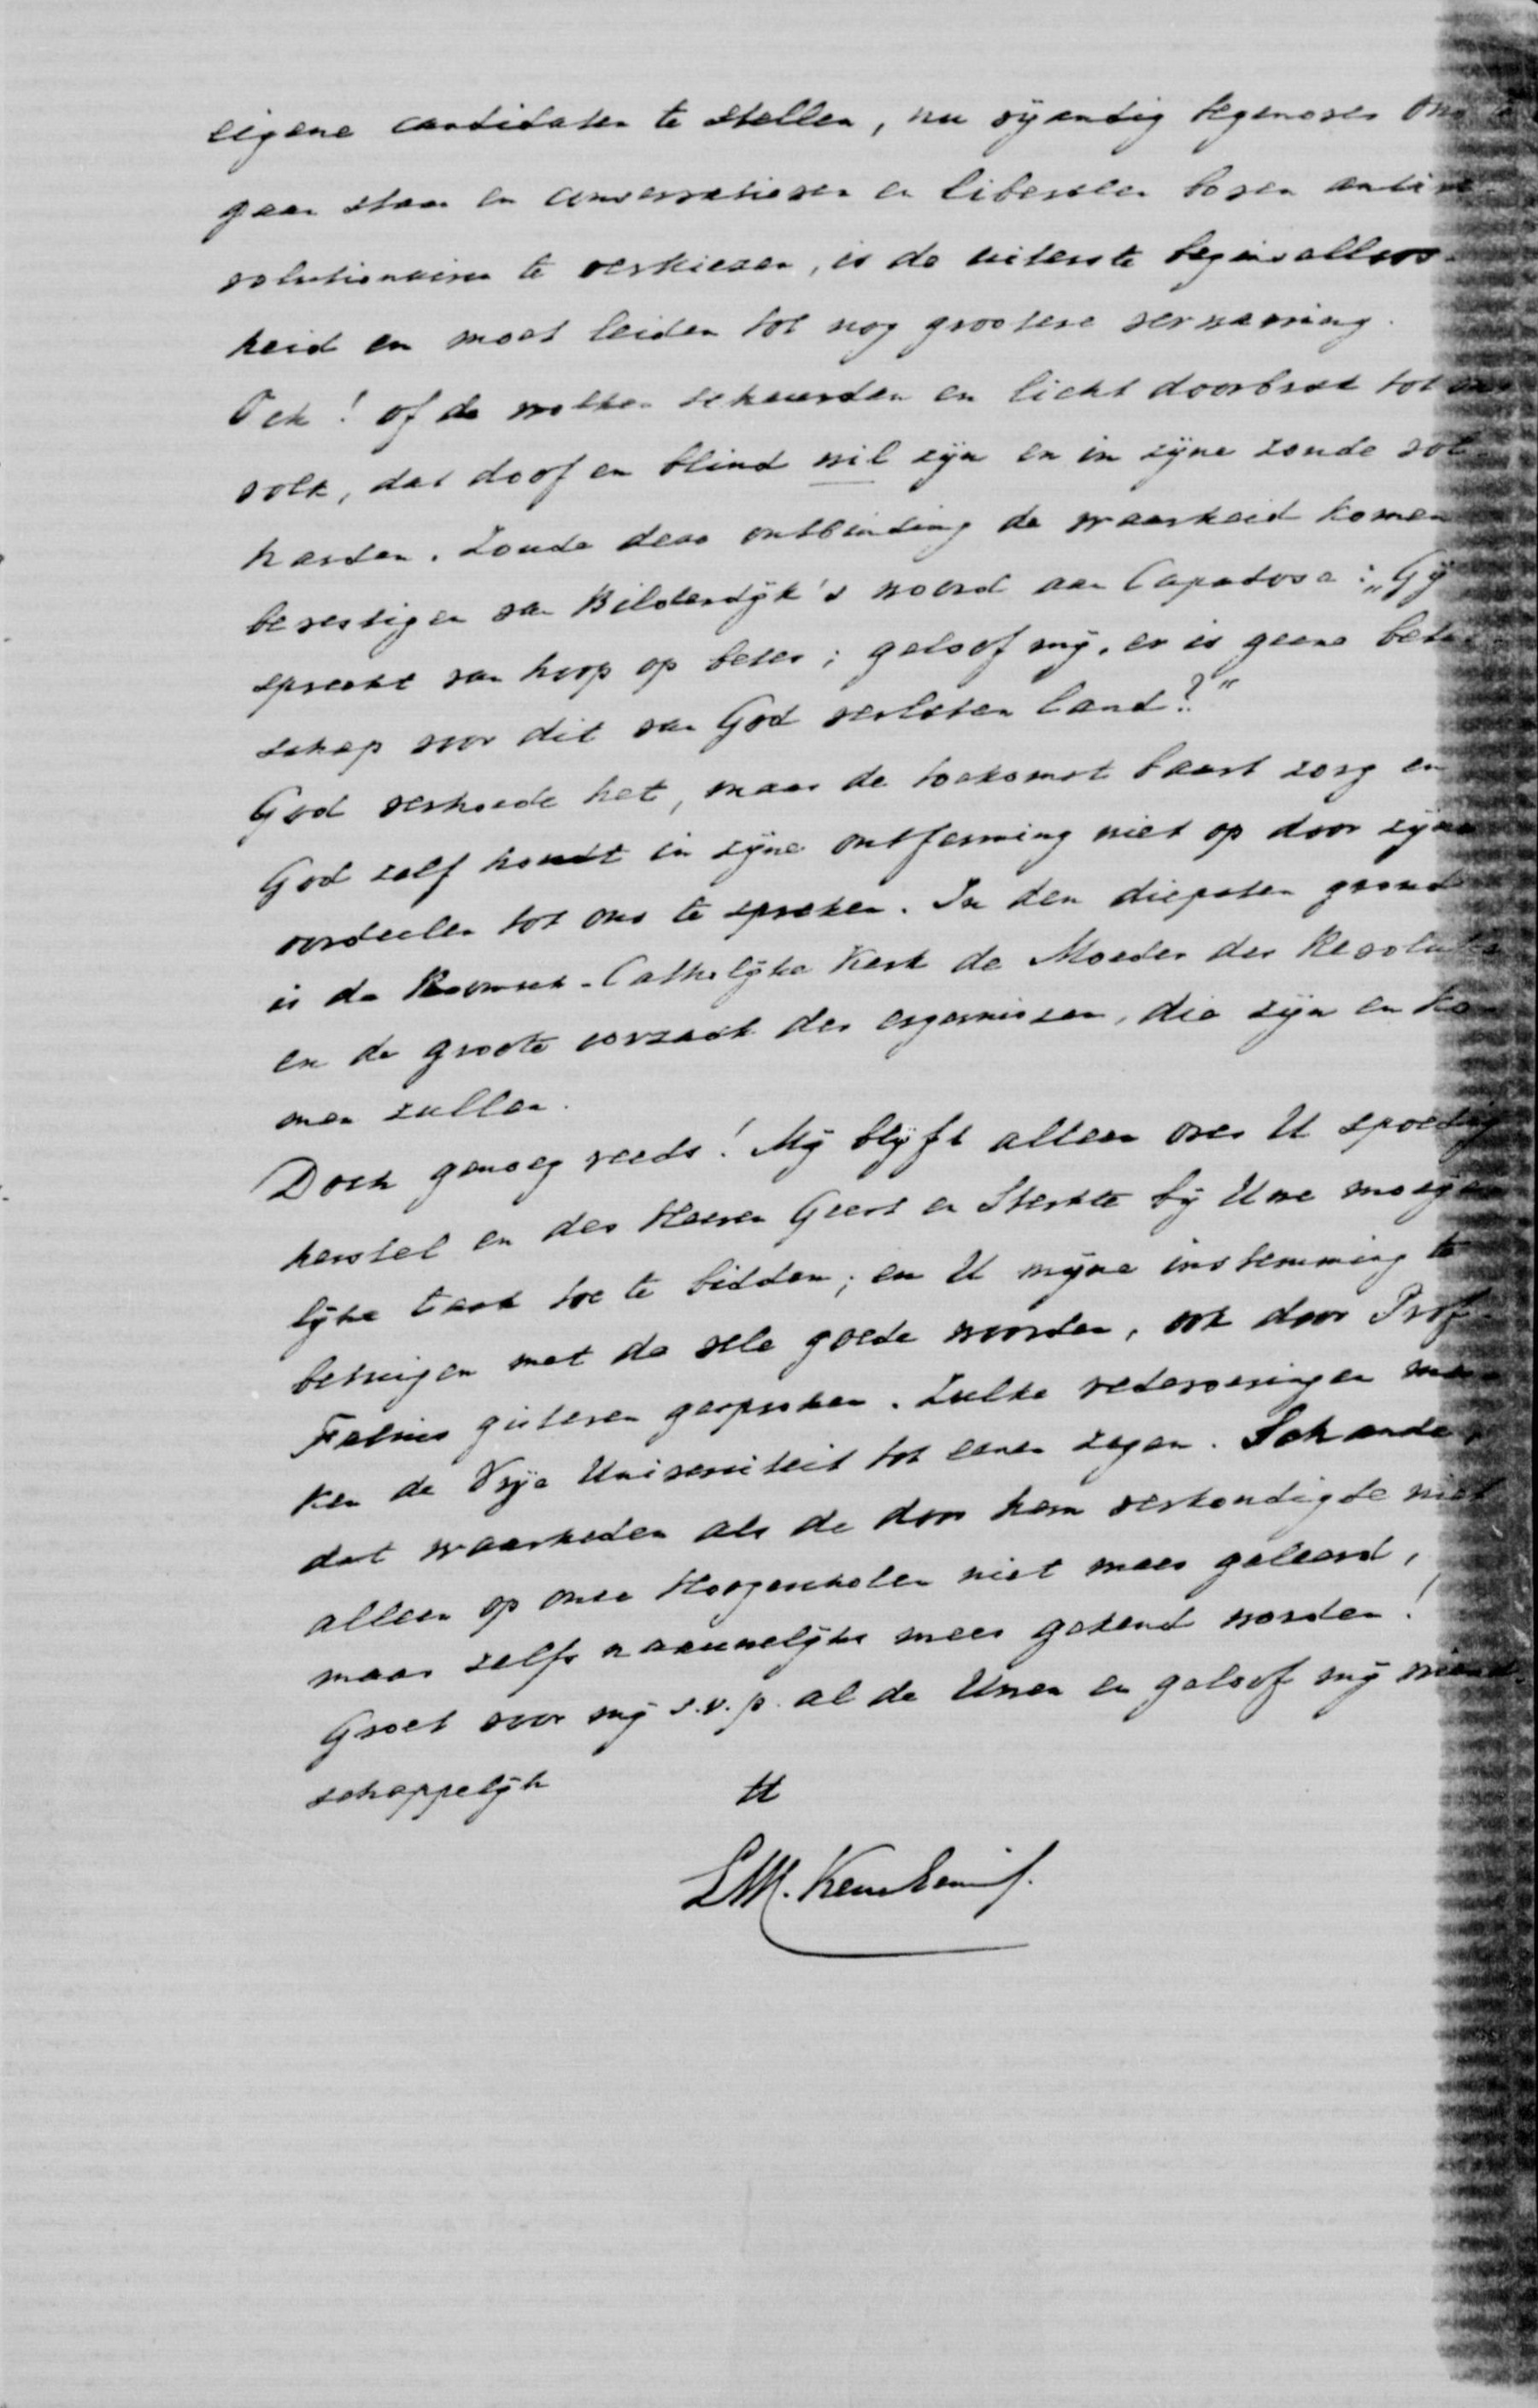 eigene candidaten te stellen, nu vijandig tegenover ons
gaan staan en conservatieven en liberalen boven antire-
volutionairen te verkiezen, is de uiterste beginselloos-
heid en moet leiden tot nog grootere verwarring.
Och! of de wolken scheurden en licht doorbrak tot ons
volk, dat doof en blind wil zijn en in zijne zonde vol-
harden. Zoude deze ontbinding de waarheid komen
bevestigen van Bilderdijk's woord aan Capadose: „Gij
spreekt van hoop op beter; geloof mij, er is geene beter-
schap voor dit van God verlaten land?"
God verhoede het, maar de toekomst baart zorg en
God zelf houdt in zijne ontferming niet op door zijne
oordeelen tot ons te spreken. In den diepsten grond
is de Roomsch-Catholijke Kerk de Moeder der Revolutie
en de groote oorzaak der ergernissen, die zijn en ko-
men zullen.
Doch genoeg reeds! Mij blijft alleen over U spoedig
herstel en des Heeren Geest en Sterkte bij Uwe moeije-
lijke taak toe te bidden; en U mijne instemming te
betuigen met de vele goede woorden, ook door Prof.
Fabius gisteren gesproken. Zulke redevoeringen ma-
ken de Vrije Universiteit tot eenen zegen. Schande,
dat waarheden als de door hem verkondigde niet
alleen op onze Hoogescholen niet meer geleerd,
maar zelfs naauwelijks meer gekend worden!
Groet voor mij s.v.p. al de Uwen en geloof mij vriend-
schappelijk
tt